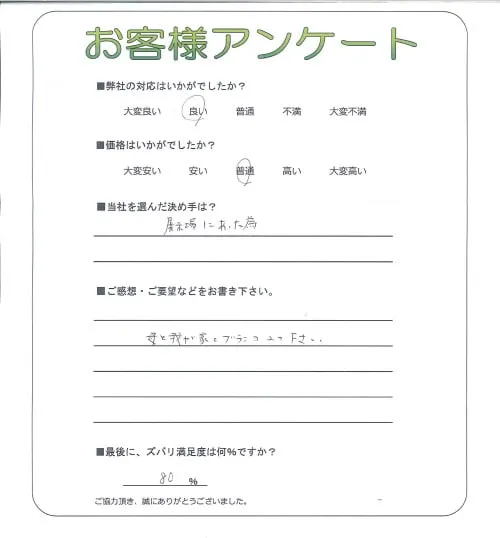 お客様アンケート
■弊社の対応はいかがでしたか？
大変良い 良い 普通 不満 大変不満
■価格はいかがでしたか？
大変安い 安い 普通 高い 大変高い
■当社を選んだ決め手は？
展示場にあった為
■ご感想・ご要望などをお書き下さい。
我が家 下さい
■最後に、ズバリ満足度は何％ですか？
80 ％
ご協力頂き、誠にありがとうございました。